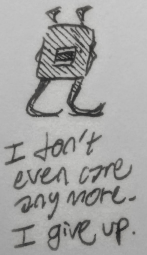 I don't
even care
any more.
I give up.